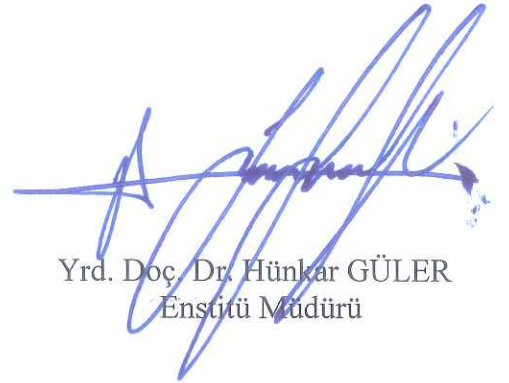 Yrd. Doç. Dr. Hünkar GÜLER
Enstitü Müdürü